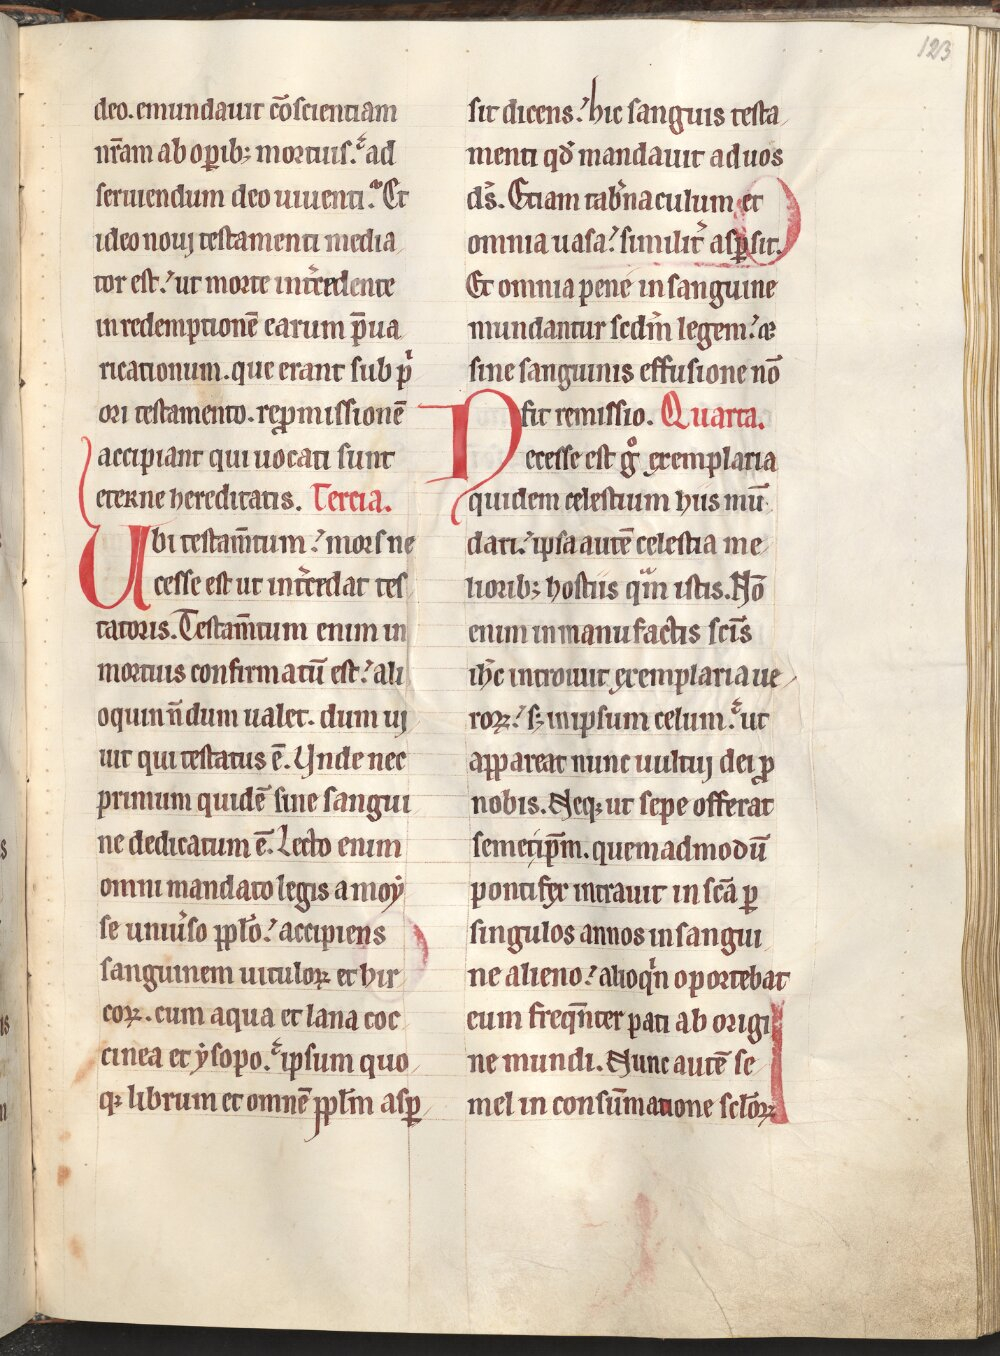 123
deo. emundauit cōscientiam
nr̄am ab oꝑib; mortuis. ad
seruiendum deo uiuenti. Et
ideo nouj testamenti media
tor est. ut morte int̄cedente
in redemptionē earum p̄ua
ricationum. que erant sub p̄
ori testamento. repꝛomissionē
accipiant qui uocati sunt
eterne hereditatis. Tercia.
Ubi testam̄tum. mors ne
cesse est ut int̄cedat tes
tatoris. Testam̄tum enim in
mortuis confirmatū est. ali
oquin n̄dum ualet. dum uj
uit qui testatus ē. Unde nec
primum quidē sine sangui
ne dedicatum ē. Lecto enim
omni mandato legis a moẏ
se uniu̓so ꝓpl̓o. accipiens
sanguinem uituloꝝ et hir
coꝝ. cum aqua et lana coc
cinea et ẏsopo. ipsum quo
qꝫ librum et omnē ꝓpl̄m asꝑ
sit dicens. hic sanguis testa
menti qd̓ mandauit ad uos
ds̄. Etiam tab̓naculum et
omnia uasa. similit̓ asꝑsit.
Et omnia pene in sanguine
mundantur scdm̄ legem. ⁊
sine sanguinis effusione nō
fit remissio. Quarta.
Necesse est gͦ exemplaria
quidem celestium hiis mū
dari. ipsa autē celestia me
liorib; hostiis qm̄ istis. Nō
enim in manufactis scīs
ih̄c introiuit exemplaria ue
roꝝ. s; in ipsum celum. ut
appareat nunc uultuj dei ꝓ
nobis. Neqꝫ ut sepe offerat
semetip̄m. quemadmodū
pontifex intrauit in scā ꝑ
singulos annos in sangui
ne alieno. alioqͥn oportebat
eum freqn̄ter pati ab origi
ne mundi. Nunc autē se
mel in consūmatione scl̓oꝝ